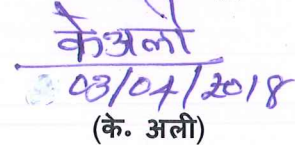 केअली
03/04/2018
(के. अली)